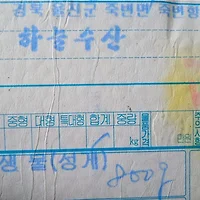 경북 울진군 죽변면 죽변항
하늘수산
중형 대형 특대형 합계 중량 물품가격
kg 만원
생물(성게) 800g